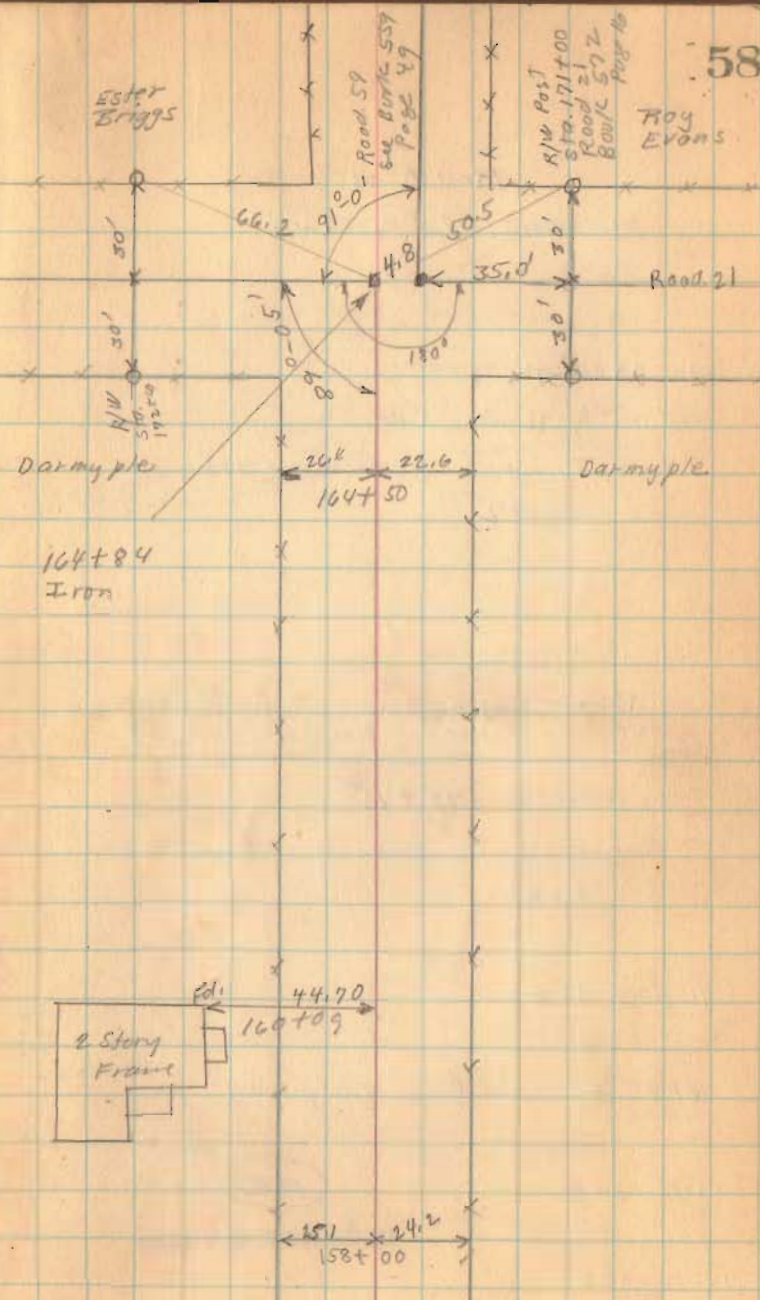 58
Ester
Briggs
Road 59
See Book 559
Page 49
R/W Post
Sta. 171+00
Road 21
Book 572
Page 16
Roy
Evans
66.2
91°-0'
50.5
30'
4.8
35.0'
30'
Road 21
30'
0-05'
180°
30'
89
R/W
Sta.
172+0
Darmyple
26.
22.6
Darmyple
164+50
164+84
Iron
Fd.
44.70
160+09
2 Story
Frame
25.1
24.2
158+00